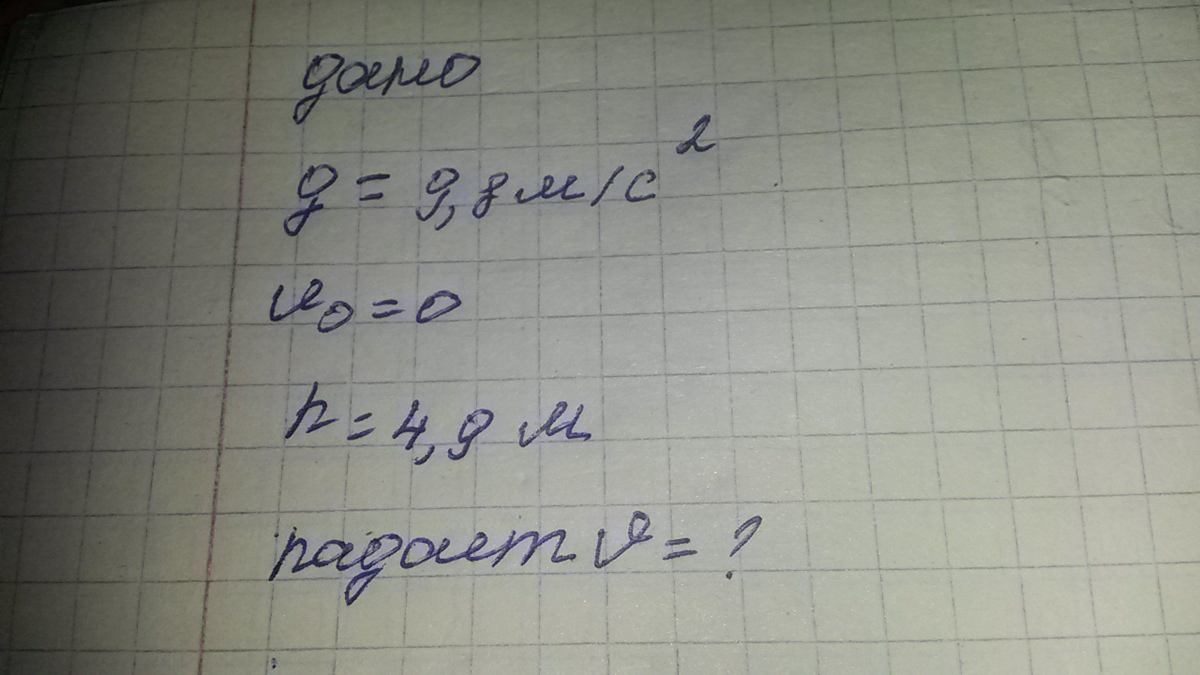 дано
g = 9,8 м/с²
v₀ = 0
h = 4,9 м
падает v = ?